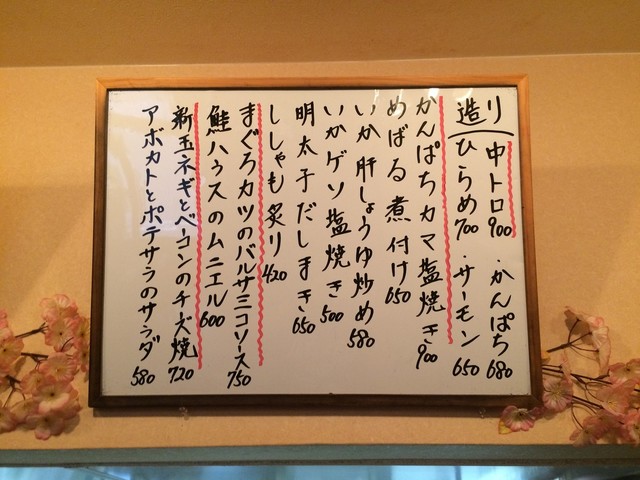 造り 中トロ900・かんぱち680
ひらめ700・サーモン650
かんぱちカマ塩焼き900
めばる煮付け650
いか肝しょうゆ炒め580
いかゲソ塩焼き500
明太子だしまき650
ししゃも炙り420
まぐろカツのバルサミコソース750
鮭ハラスのムニエル600
新玉ネギとベーコンのチーズ焼720
アボカトとポテサラのサラダ580